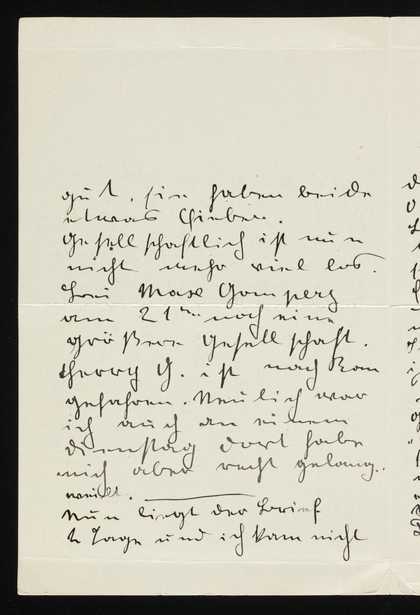 gut, sie haben beide
etwas Chinin.
Gesellschaftlich ist nun
nicht mehr viel los.
bei Max Gomperz
am 21ten noch eine
größere Gesellschaft.
Harry G. ist nach Rom
gefahren. Neulich war
ich auch an einem
Dienstag dort habe
mich aber recht gelang-
weilt.
Nun liegt der Brief
2 Tage und ich kam nicht